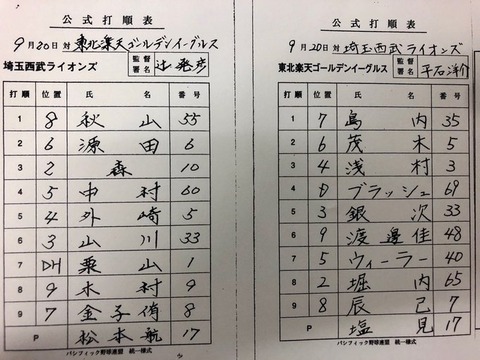 公式打順表
9月20日 対 東北楽天ゴールデンイーグルス
埼玉西武ライオンズ 監督署名 辻発彦
打順 位置 氏名 番号
1 8 秋山 55
2 6 源田 6
3 2 森 10
4 5 中村 60
5 4 外崎 5
6 3 山川 33
7 DH 栗山 1
8 9 木村 9
9 7 金子侑 8
P 松本航 17
パシフィック野球連盟 統一様式
公式打順表
9月20日 対 埼玉西武ライオンズ
東北楽天ゴールデンイーグルス 監督署名 平石洋介
打順 位置 氏名 番号
1 7 島内 35
2 6 茂木 5
3 4 浅村 3
4 D ブラッシュ 69
5 3 銀次 33
6 9 渡邊佳 48
7 5 ウィーラー 40
8 2 堀内 65
9 8 辰己 7
P 塩見 17
パシフィック野球連盟 統一様式